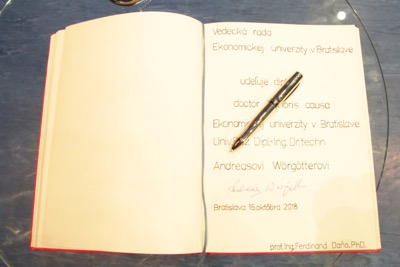 Vedecká rada
Ekonomickej univerzity v Bratislave
udeľuje
doctor causa
Ekonomickej univerzity v Bratislave
Dipl.-Ing. Dr.techn.
Andreasovi Wörgötterovi
Bratislava 16.októbra 2018
prof.Ing.Ferdinand Daňo,PhD.